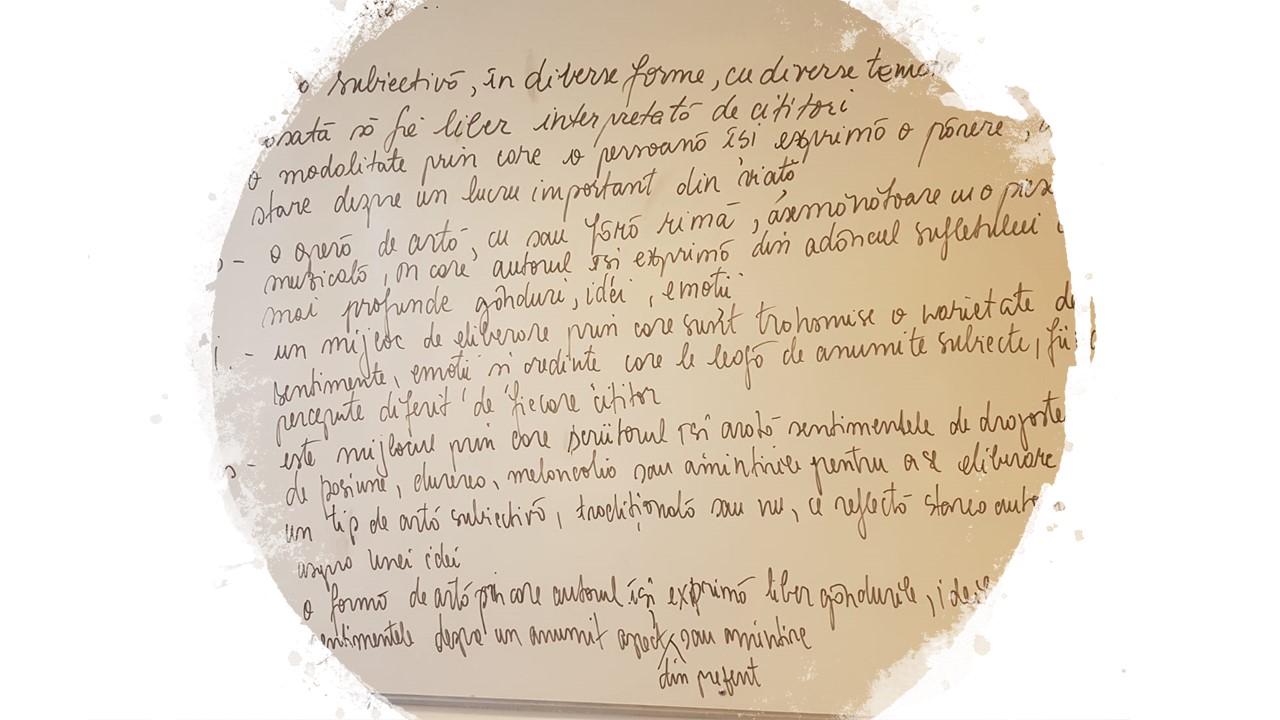 o subiectivă, în diverse forme, cu diverse
să fie liber interpretată de cititori
o modalitate prin care o persoană își exprimă o părere,
stare despre un lucru important din viață
- o operă de artă, cu sau fără rimă, asemănătoare cu o
muzicală, în care autorul își exprimă din adâncul sufletului
mai profunde gânduri, idei, emoții
- un mijloc de eliberare prin care sunt transmise o varietate de
sentimente, emoții și credințe care le leagă de anumite subiecte,
percepute diferit de fiecare cititor
- este mijlocul prin care scriitorul își arată sentimentele de dragoste
de pasiune, durerea, melancolia sau amintirile pentru a se eliberare
un tip de artă subiectivă, tradițională sau nu, ce reflectă starea
asupra unei idei
o formă de artă prin care autorul își exprimă liber gândurile,
sentimentele despre un anumit aspect sau amintire
din prezent